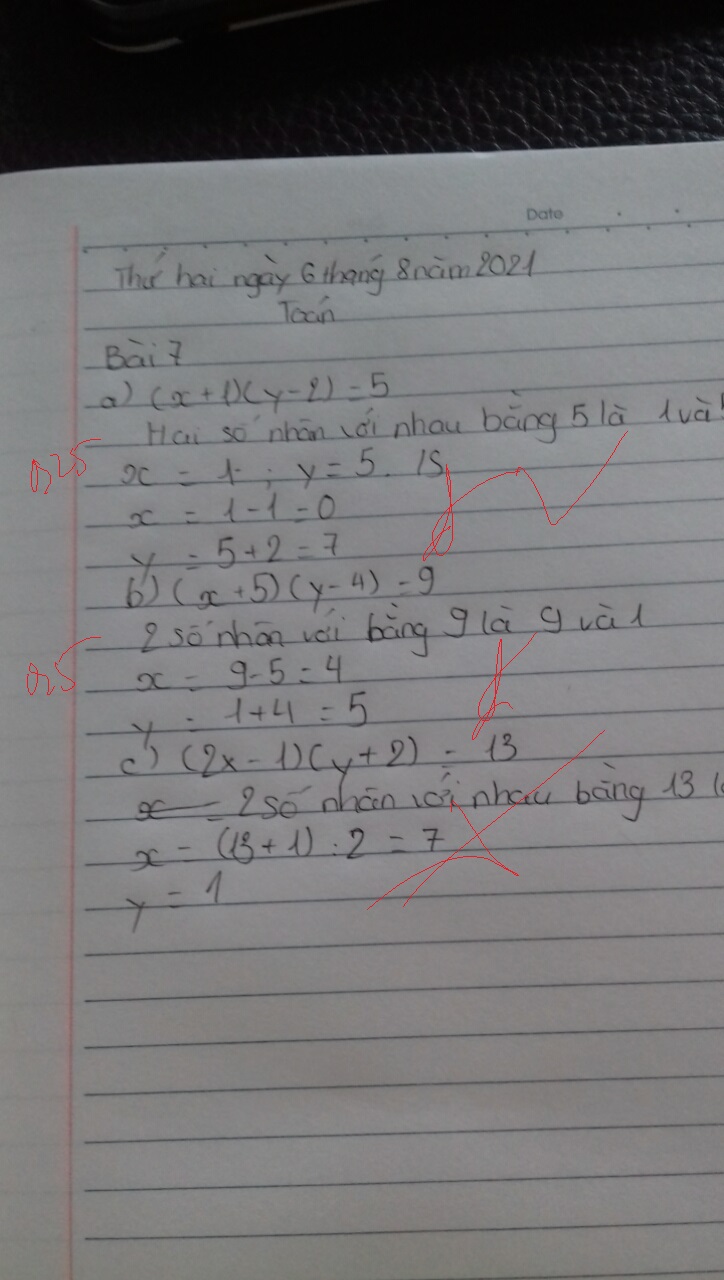 Date
Thứ hai ngày 6 tháng 8 năm 2021
Toán
Bài 7
a) (x+1)(y-2) = 5
Hai số nhân với nhau bằng 5 là 1 và
0,25
x = 1 ; y = 5.
x = 1-1 = 0
y = 5+2 = 7
b) (x+5)(y-4) = 9
2 số nhân với bằng 9 là 9 và 1
0,25
x = 9-5 = 4
y = 1+4 = 5
c) (2x-1)(y+2) = 13
x = 2 số nhân với nhau bằng 13
x = (13+1) : 2 = 7
y = 1